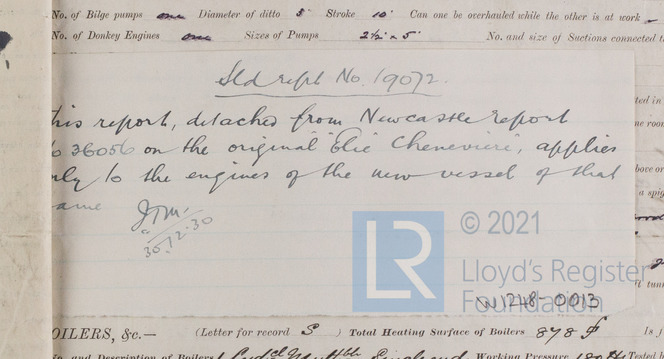 No. of Bilge pumps one Diameter of ditto 5" Stroke 10" Can one be overhauled while the other is at work
No. of Donkey Engines one Sizes of Pumps 2½" x 5" No. and size of Suctions connected
Sld rept No. 19072.
his report, detached from Newcastle report
36056 on the original "Elie Chenevière", applies
nly to the engines of the new vessel of that
ame
30.12.30
© 2021
LR
Lloyd's Register
Foundation
W1248-0013
OILERS, &c.— (Letter for record S) Total Heating Surface of Boilers 878
and Description of Boilers Working Pressure